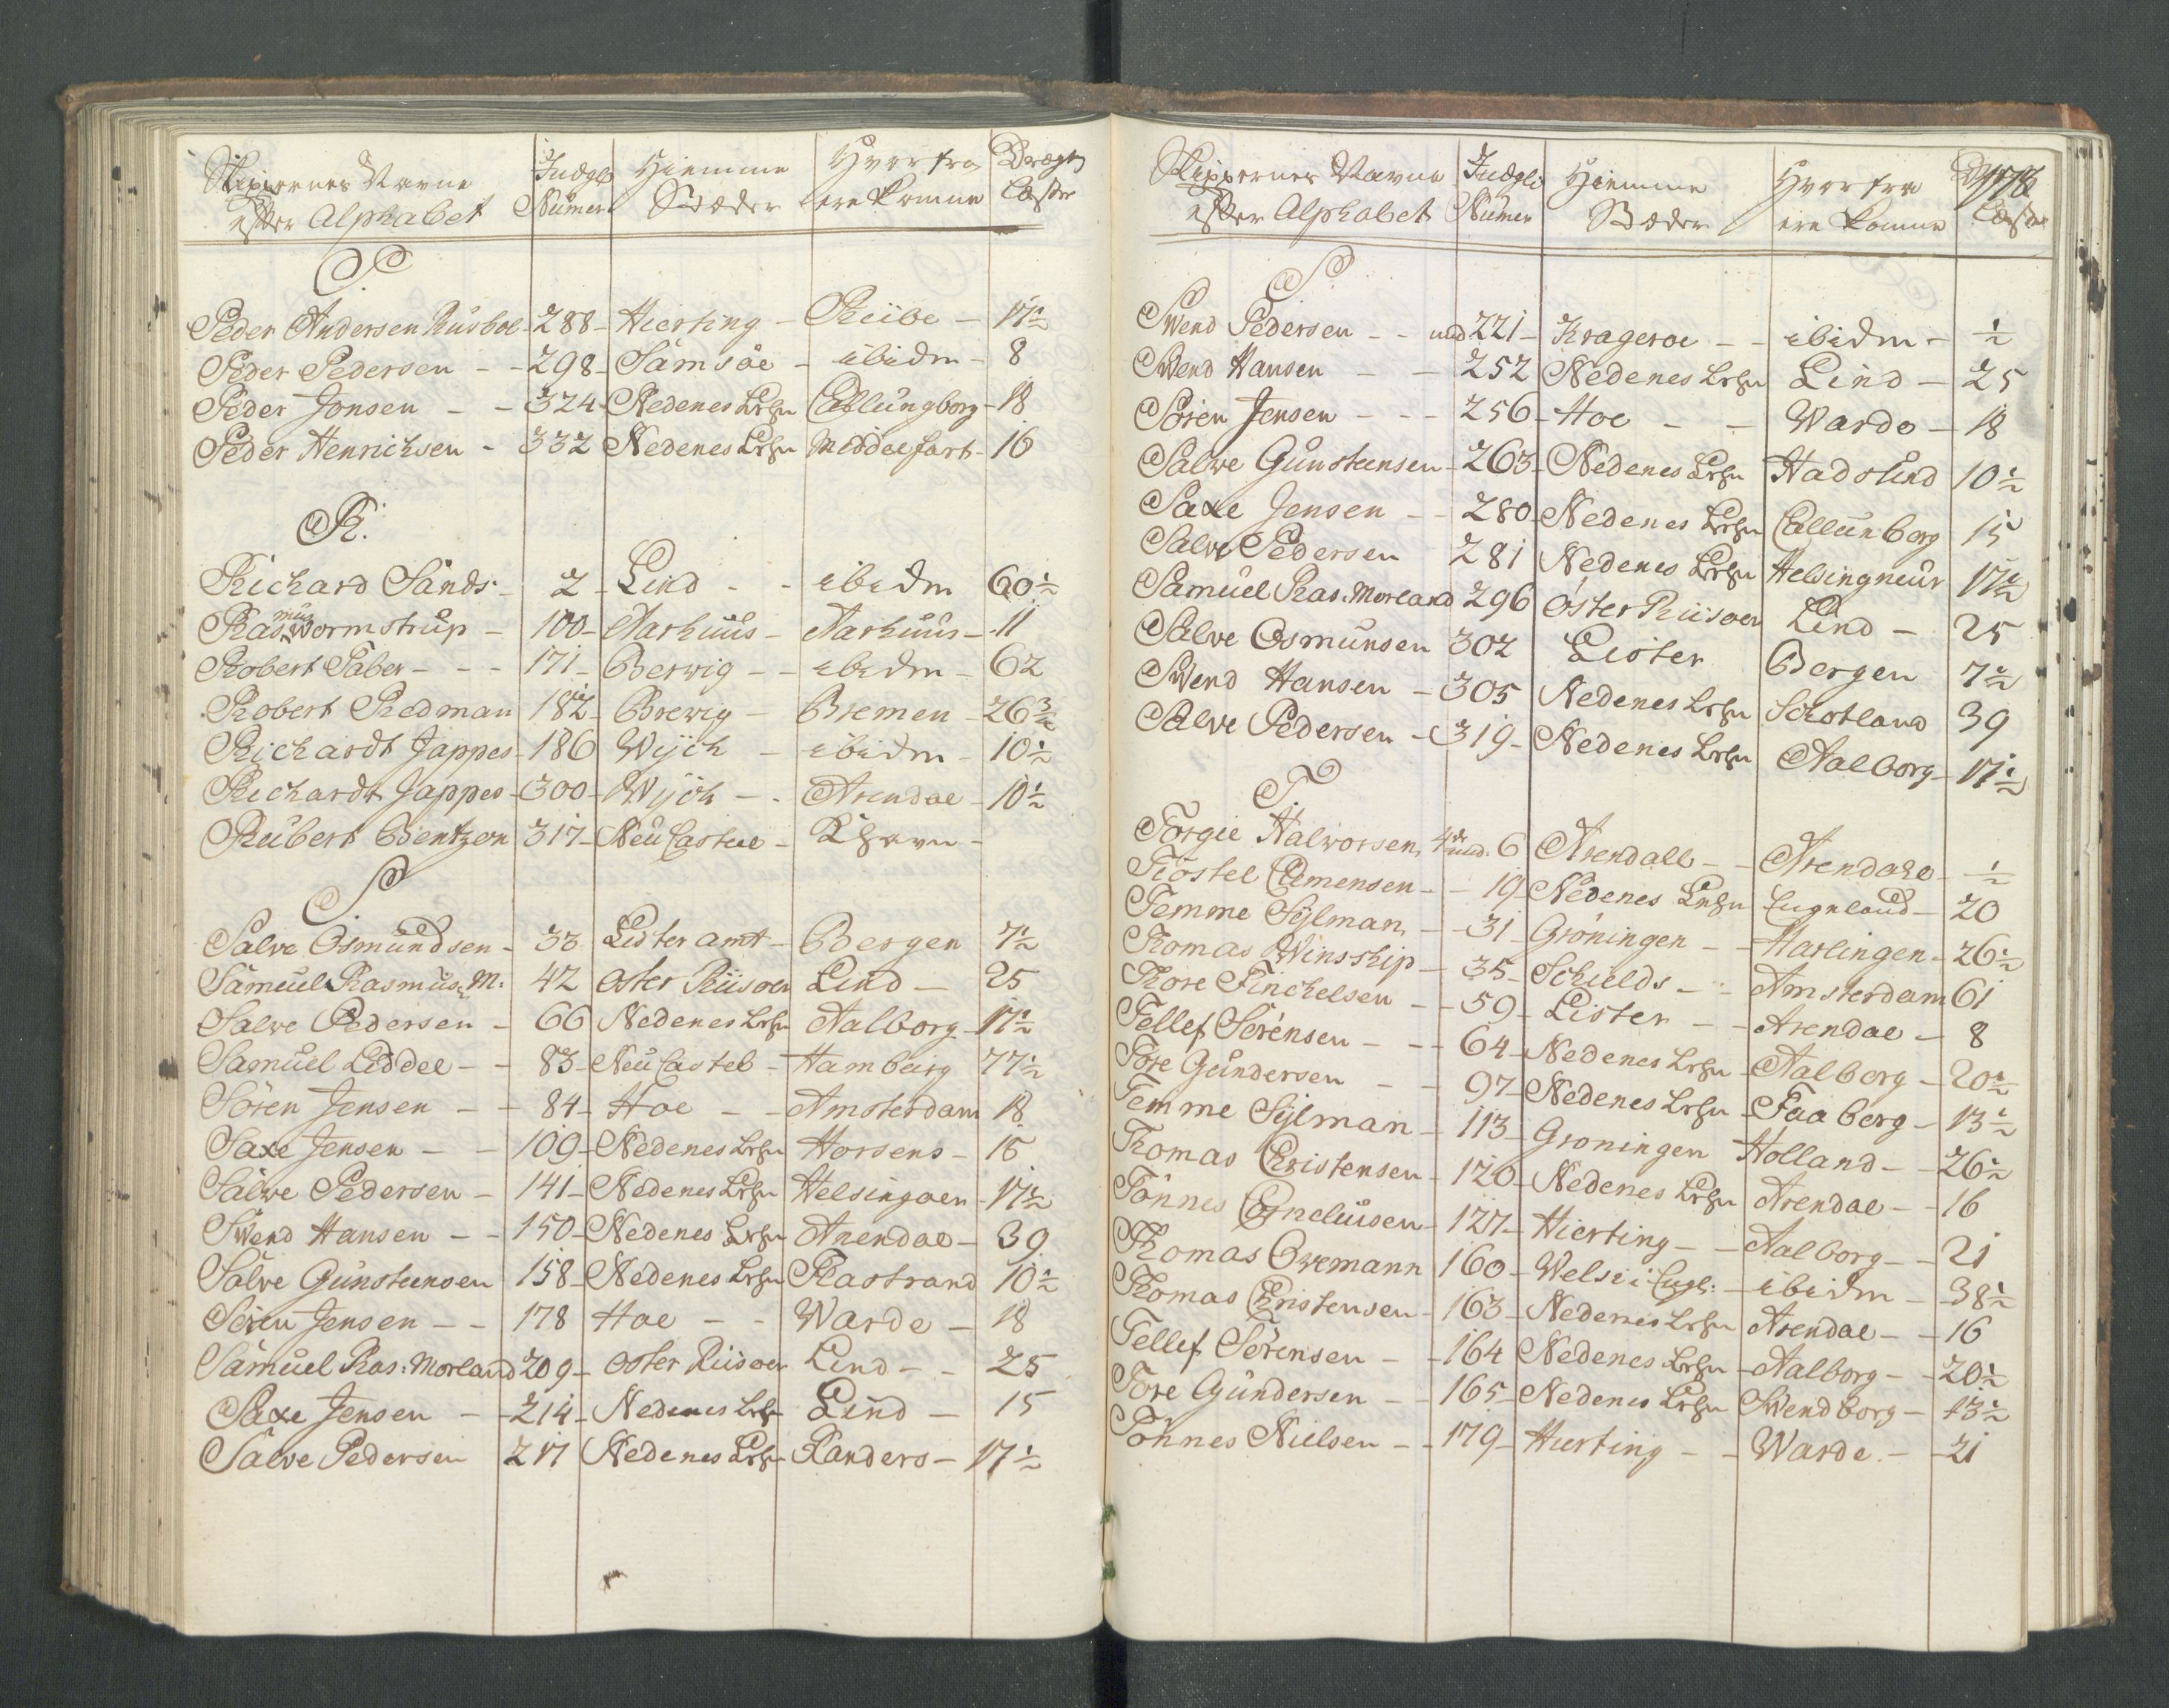 Skippernes Navne efter Alphabet | Indgl Numer | Hiemme Stæder | Hvorfra ere komne | Drægt Læster
P
Peder Andersen Kusboe - 288 - Hierting - Riibe - 17½
Peder Pedersen - - 298 - Samsöe - ibidm - 8
Peder Jonsen - - 324 - Nedenes Lehn Callungborg - 18
Peder Henrichsen - 332 Nedenes Lehn Middelfart - 16
R.
Richard Sands - 2 - Lind - - ibidm 60½
Rasmus Wormstrup - 100 - Aarhuus - Aarhuus - 11
Robert Taber - - - 171 - Berwig - - ibidm - 62
Robert Redman 182 - Brewig - Bremen - 26¾
Richardt Jappes - 186 Wijch - ibidm - 10½
Richardt Jappes - 300 - Wijch - - Arendae - 10½
Rubert Bentzon 317 - Neu Castele - Khavn -
S
Salve Osmundsen - 33 Lister amt - Bergen 7½
Samuel Rasmus: M: 42 Oster Riisoer Lind - 25
Salve Pedersen - 66 Nedenes Lehn Aalborg - 17½
Samuel Liddel - - 83 - Neu Castel - Hamburg 77½
Sören Jensen - - 84 - Hoe - - Amsterdam 18
Saxe Jensen - - 109 - Nedenes Lehn Horsens - 15
Salve Pedersen - 141 - Nedenes Lehn Helsingoen - 17½
Swend Hansen - - 150 - Nedenes Lehn Arendae - 39
Salve Gunsteensen 158 - Nedenes Lehn Rastrand 10½
Sören Jensen - - 178 Hoe - - Warde - 18
Samuel Ras: Morland 209 - Oster Riisoer Lind - - 25
Saxe Jensen - - 214 - Nedenes Lehn Lind - 15
Salve Pedersen 217 Nedenes Lehn Randers - 17½
Skippernes Navne efter Alphabet | Indgl Numer | Hiemme Stæder | Hvorfra ere komne | Læster
S
Swend Pedersen - - und 221 - Krageroe - - ibidm - ½
Swend Hansen - - 252 Nedenes Lehn Lind - 25
Sören Jensen - - - 256 - Hoe - - Warde - 18
Salwe Gunsteensen - 263 - Nedenes Lehn Hadslind 10½
Saxe Jensen - - 280 - Nedenes Lehn Callunborg 15
Salve Pedersen 281 Nedenes Lehn Helsingneur 17½
Samuel Ras: Morland 296 öster Riisoer Lind - 25
Salve Osmunsen 302 Lister Bergen 7½
Swend Hansen - 305 Nedenes Lehn Schotland 39
Salve Pedersen - 319 - Nedenes Lehn Aalborg - 17½
T
Torgie Halworsen, 4de und. 6 Arendall - - Arendahl - ½
Tiöstel Clemensen - - 19 - Nedenes Lehn Engeland - 20
Temme Sylman, - - 31 - Gröningen - - Harlingen - 26½
Thomas Winsship - 35 - Schields - - Amsterdam 61
Thore Finchelsen - - 59 - Lister - - Arendae - 8
Tellef Sörensen - - - 64 - Nedenes Lehn - Aalborg - 20½
Tore Gundersen - - 97 - Nedenes Lehn - Faaborg - 13½
Temme Sylman - 113 - Groningen Holland - - 26½
Thomas Christensen - 120 - Nedenes Lehn Arendae - - 16
Tönnes Cornelüsen - 127 - Hierting - - Aalborg - - 21
Thomas Overmann 160 - Welse i Engl: - ibidm - 38½
Thomas Christensen - 163 - Nedenes Lehn Arendae - - 16
Tellef Sörensen - - 164 Nedenes Lehn - Aalborg - - 20½
Tore Gundersen - - 165 - Nedenes Lehn Swendborg - 13½
Tönnes Nielsen - - 179 - Hierting - - Warde. - - 21